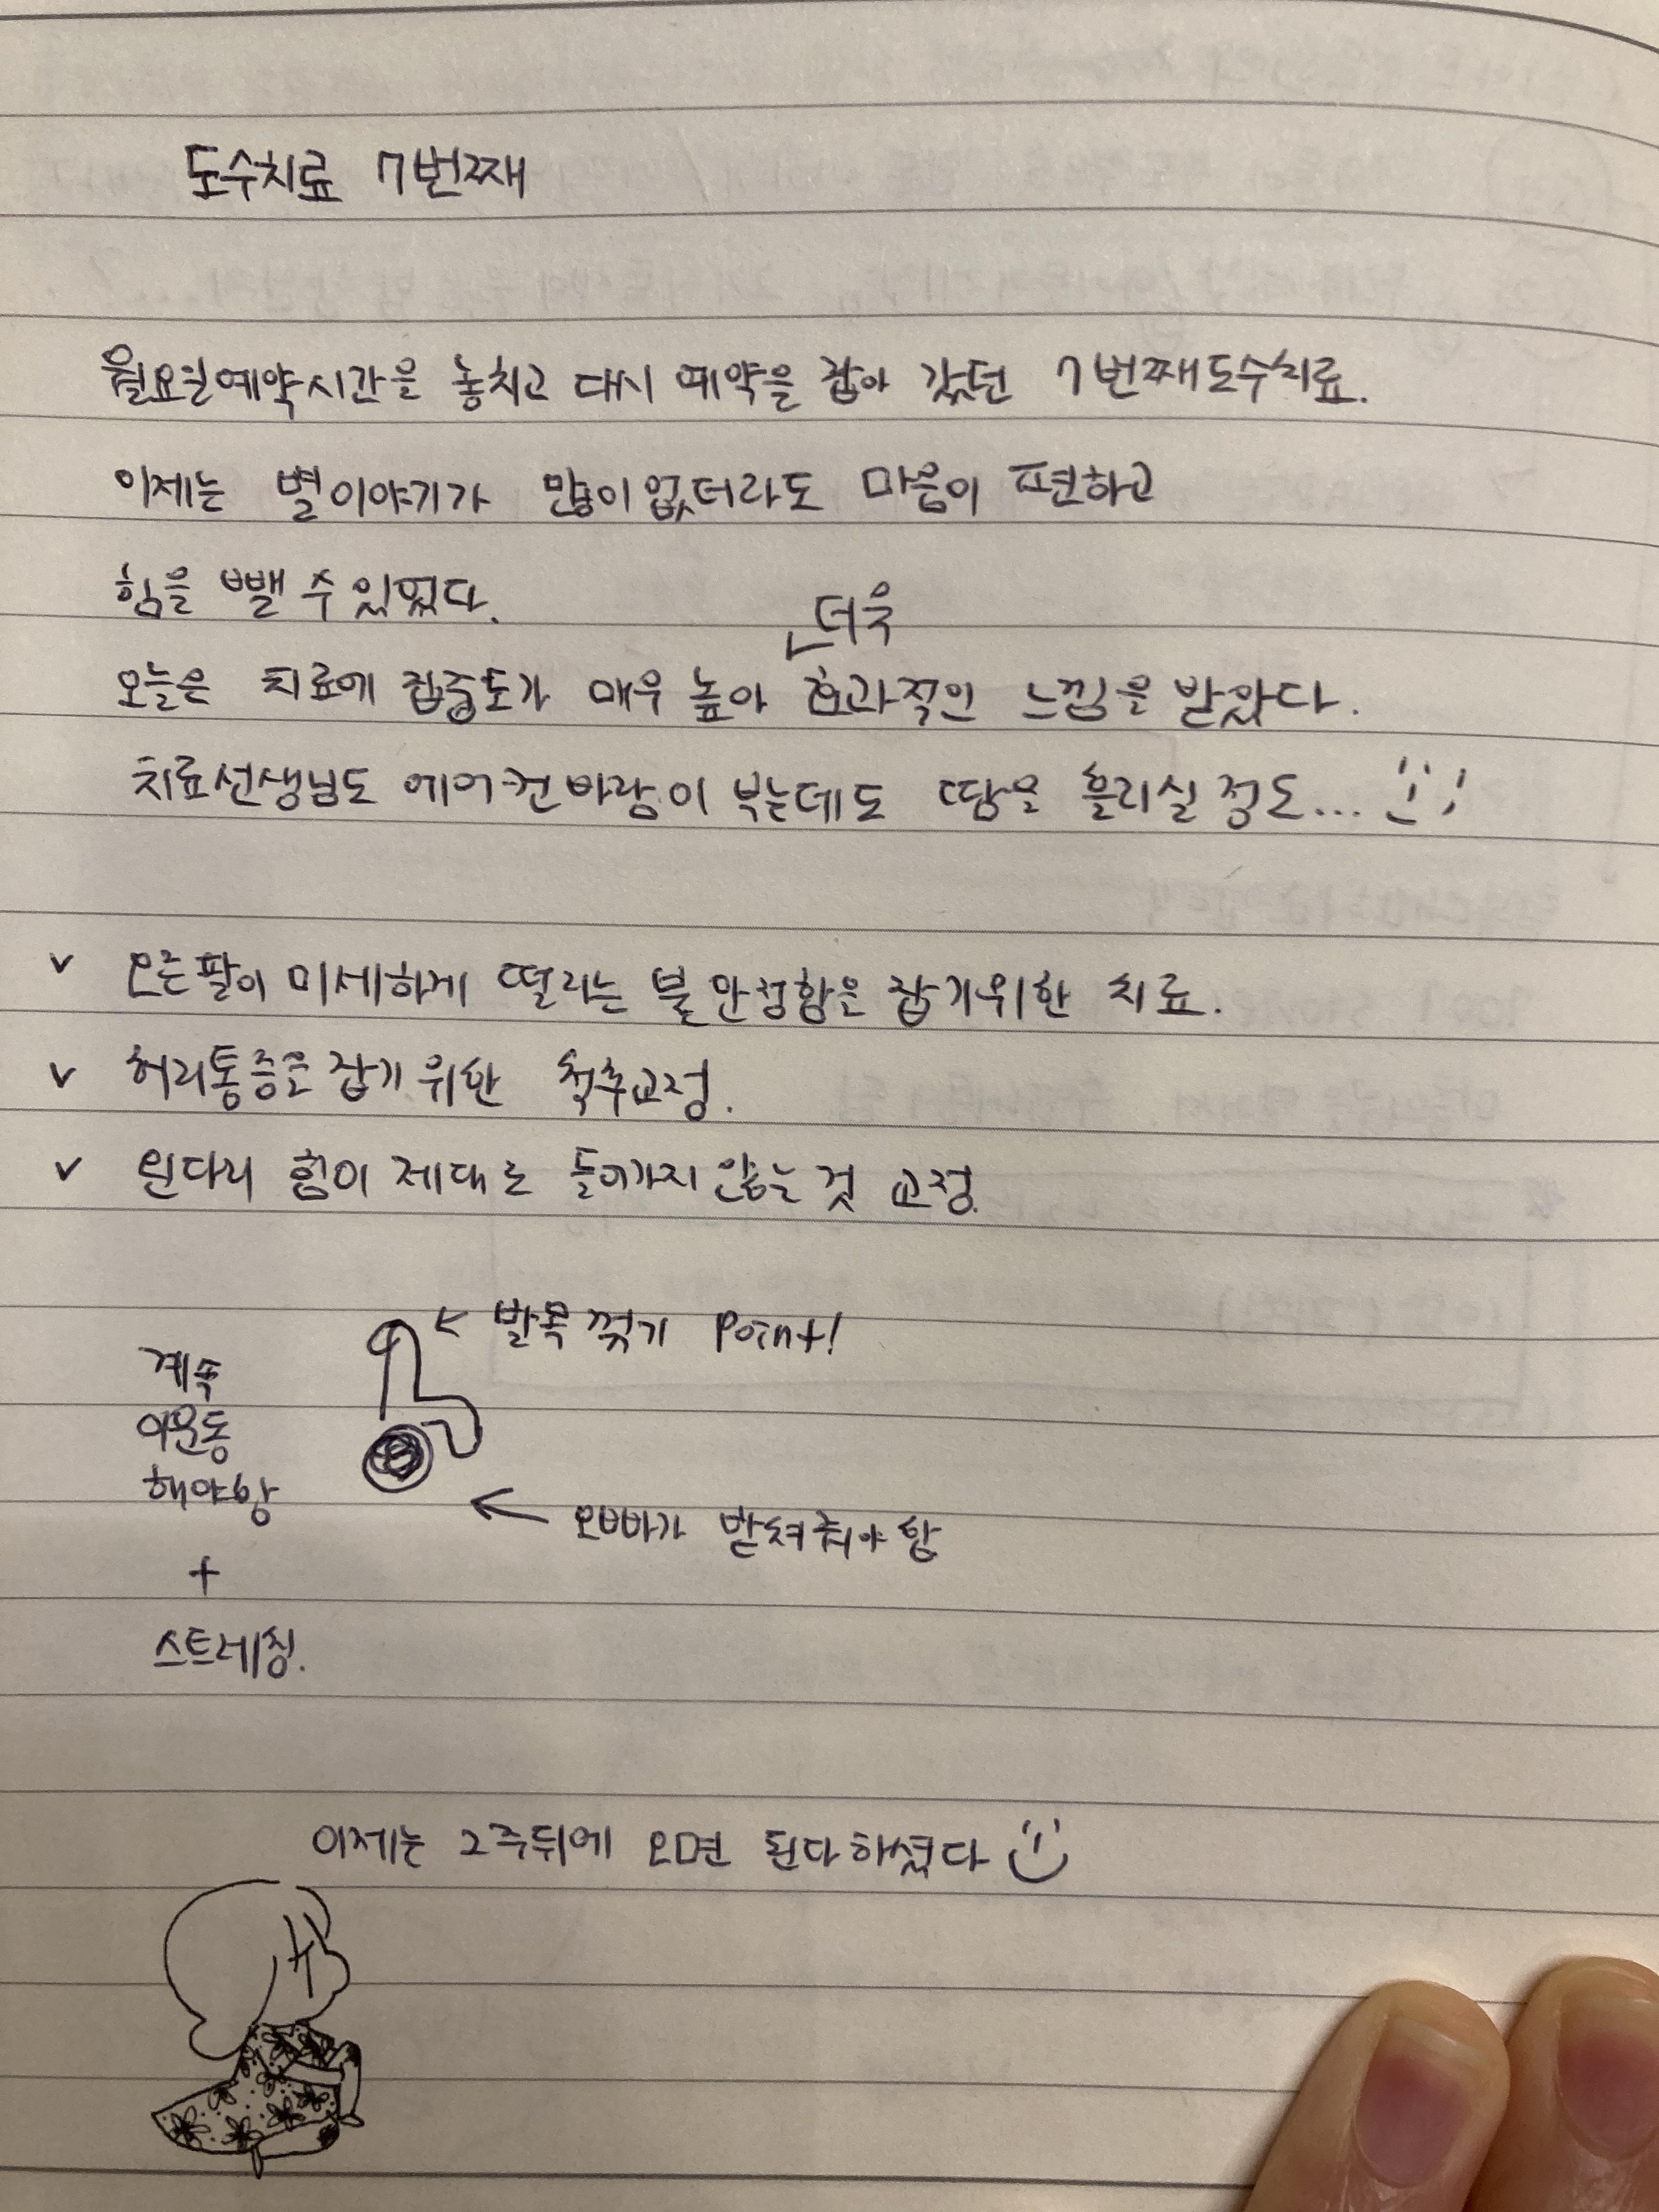 도수치료 7번째
월요일예약시간을 놓치고 다시 예약을 잡아 갔던 7번째도수치료.
이제는 별이야기가 많이없더라도 마음이 편하고
힘을 뺄 수 있었다.
더욱
오늘은 치료에 집중도가 매우 높아 효과적인 느낌을 받았다.
치료선생님도 에어컨바람이 부는데도 땀을 흘리실 정도...
v 오른팔이 미세하게 떨리는 불안정함을 잡기위한 치료.
v 허리통증을 잡기 위한 척추교정.
v 왼다리 힘이 제대로 들어가지 않는 것 교정.
발목 꺾기 point!
계속
이운동
해야함
오빠가 받쳐줘야 함
+
스트레칭.
이제는 2주뒤에 오면 된다하셨다